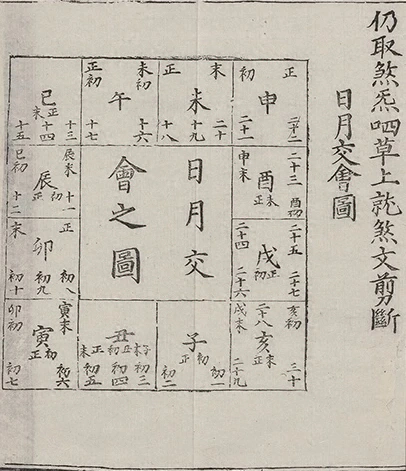 仍取煞炁呬草上就煞文剪斷
日月交會圖
正
申
初
二十二
二十一
末
未
正
二十
十九
十八
末初
午
正初
十六
十七
巳
正末
十三
十四
十五
二十三
酉初
申末
酉
末正
二十五
二十七
二十四
二十六
戌
正初
亥初
三十
二十八
亥
末正
戌末
二十九
日月交
會之圖
子
初正
初一
初二
丑
子末
初三
丑初
初四
正末
初五
寅末
初六
寅
初正
卯初
初七
正
初八
卯
初九
末
初十
辰末
十一
辰
初正
巳初
十二